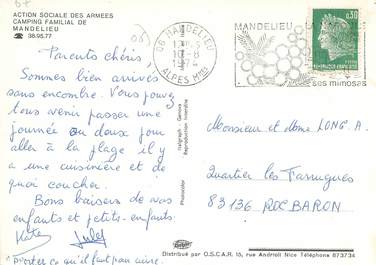 ACTION SOCIALE DES ARMEES
CAMPING FAMILIAL DE
MANDELIEU
☎ 38.95.77
Parents chéris,
Sommes bien arrivés
sans encombre. Vous pouvez
tous venir passer une
journée ou deux pour
aller à la plage il y
a une cuisinière et de
quoi coucher.
Bons baisers de vos
enfants et petits-enfants
Jules
porter ce qu'il faut pour cuire.
06 MANDELIEU
10-8
1974
ALPES Mmes
MANDELIEU
ses mimosas
0,50
REPUBLIQUE FRANÇAISE
Italgraph - Genova
Reproduction interdite
Photocolor
Monsieur et Mme LONG. A.
Quartier les Farrugues
83136 ROCBARON
Distribué par O.S.C.A.R. 15, rue Andrioli Nice Téléphone 873734